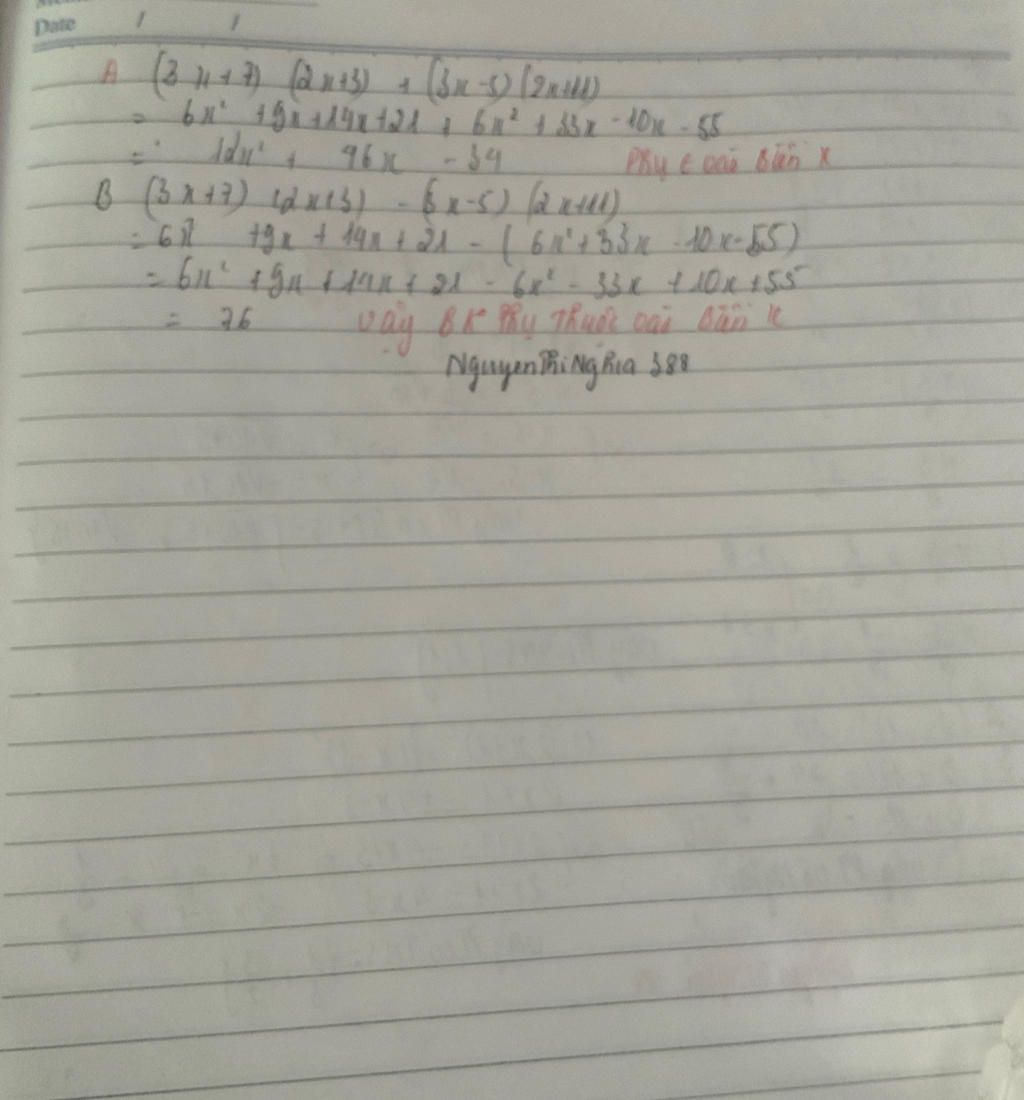 Date / /
A (3x+7) (2x+3) + (3x-5) (2x+11)
= 6x² + 9x+14x+21 + 6x² + 33x - 10x - 55
= 12x² + 46x - 34 Phụ t vào biến x
B (3x+7) (2x+3) - (3x-5) (2x+11)
= 6x² + 9x + 14x + 21 - (6x² + 33x - 10x - 55)
= 6x² + 9x + 14x + 21 - 6x² - 33x + 10x + 55
= 76 Vậy B K Phụ Thuộc vào biến x
NguyenThiNghia 388